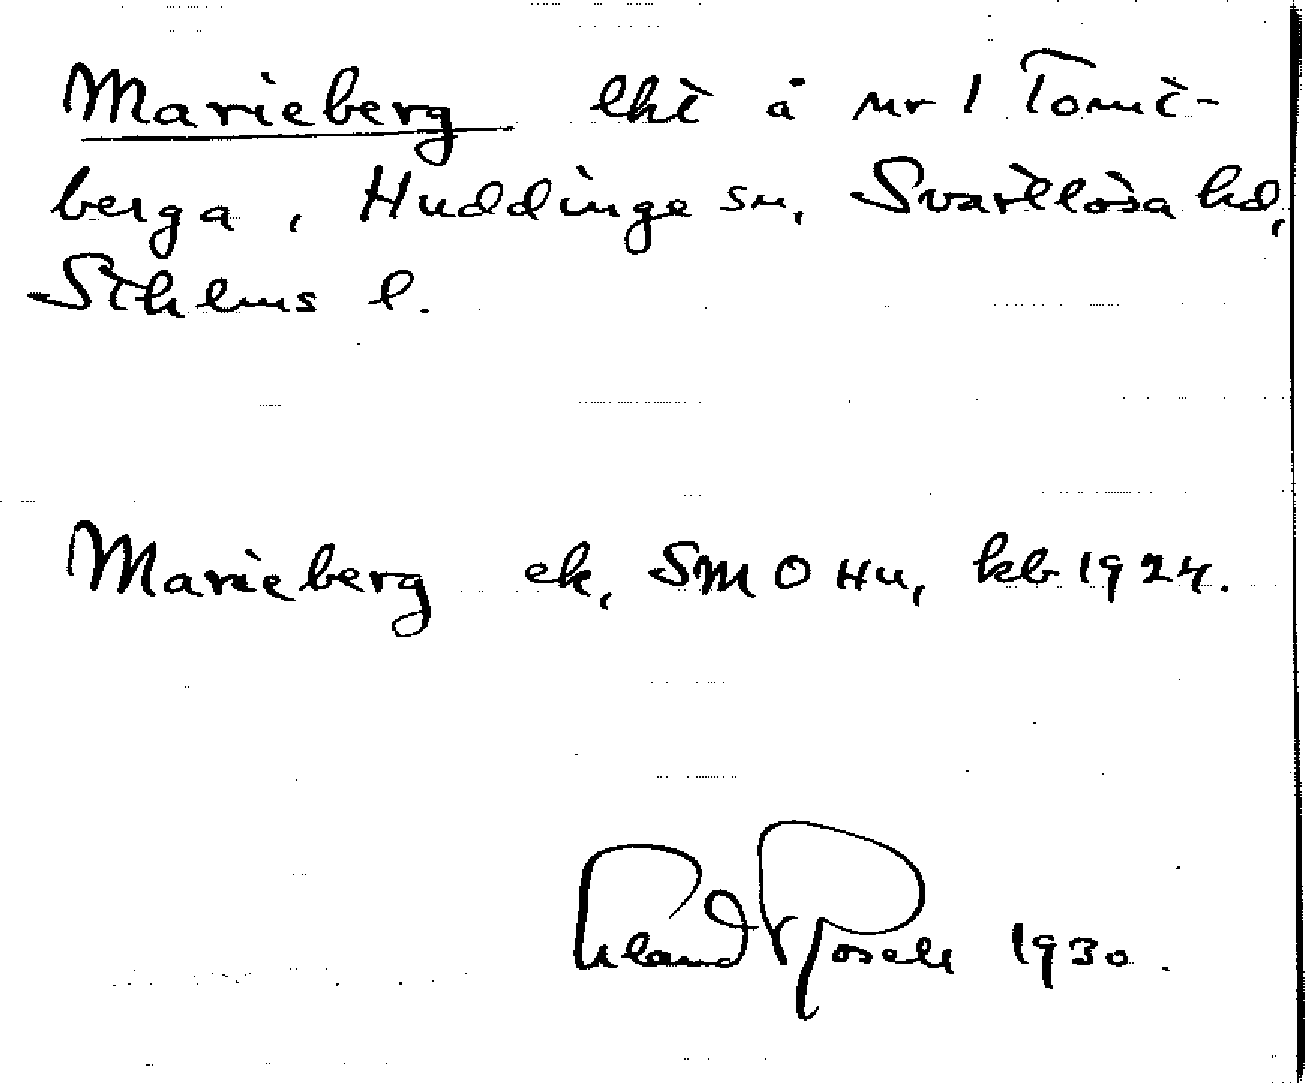 Marieberg lht å nr 1 Tomt-
berga, Huddinge sn, Svartlösa hd,
Sthlms l.
Marieberg ek, SMO Hu, kb 1924.
Erland Rosell 1930.